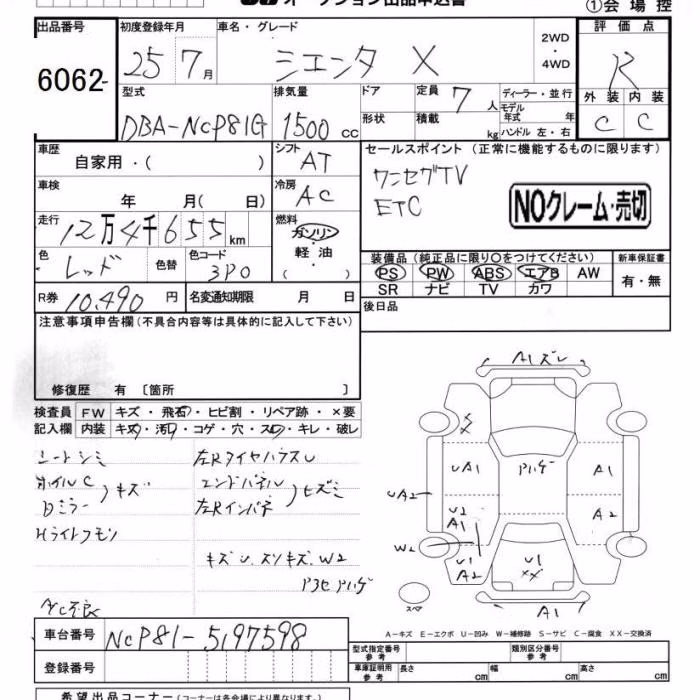 オークション出品申込書
①会場控
出品番号 初度登録年月 車名・グレード 評価点
6062- 25 7月 シエンタ X 2WD ・ 4WD R
型式 排気量 ドア 定員 7人 ディーラー・並行 外装 内装
DBA-NCP81G 1500cc 形状 積載 kg モデル年式 年 C C
ハンドル 左・右
車歴 自家用・( ) シフト AT セールスポイント (正常に機能するものに限ります)
車検 年 月( 日) 冷房 AC ワンセグTV
ETC
NOクレーム・売切
走行 12万4千655km 燃料 ガソリン・軽油・( )
色 レッド 色替 色コード 3P0 装備品 (純正品に限り〇をつけてください) 新車保証書
PS PW ABS エアB AW 有・無
SR ナビ TV カワ
R券 10,490円 名変通知期限 月 日 後日品
注意事項申告欄(不具合内容等は具体的に記入して下さい)
修復歴 有 〔箇所 〕
検査員 FW キズ・飛石・ヒビ割・リペア跡・×要
記入欄 内装 キズ・汚れ・コゲ・穴・スレ・キレ・破レ
シートシミ 左RタイヤハウスU
ホイルC エンドパネル
Dミラー キズ 左Rインパネ ヒズミ
Hライトクモリ
キズU.スリキズ.W2
A/C不良
A1ズレ
××
UA1 A1
UA2
U2 A1 A2
W2
U1 A2 U1 ××
A1
スペア
A-キズ E-エクボ U-凹み W-補修跡 S-サビ C-腐食 XX-交換済
車台番号 NCP81-5197598 型式指定番号 参考 類別区分番号 参考
登録番号 車庫証明用 参考 長さ cm 幅 cm 高さ cm
希望出品コーナー (コーナーは各会場により異なります)